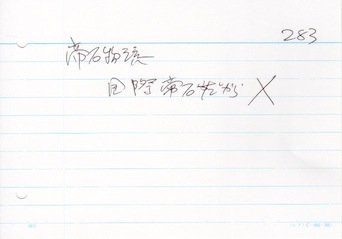 283
帝石物語
国際帝石だから ×